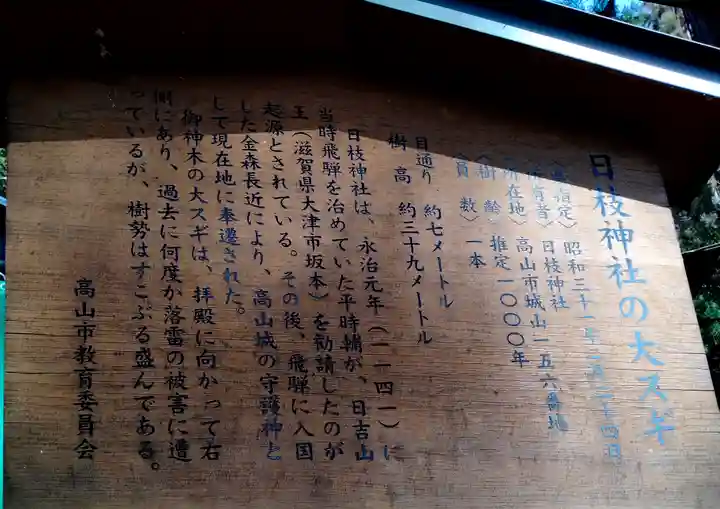 日枝神社の大スギ
指定）昭和三十一年 月二十四日
所有者）日枝神社
所在地 高山市城山一五六番地
樹齢）推定一〇〇〇年
（員数）一本
目通り 約七メートル
樹高 約三十九メートル
日枝神社は、永治元年（一一四一）に
当時飛騨を治めていた平時輔が、日吉山
王（滋賀県大津市坂本）を勧請したのが
起源とされている。その後、飛騨に入国
した金森長近により、高山城の守護神と
して現在地に奉遷された。
御神木の大スギは、拝殿に向かって右
側にあり、過去に何度か落雷の被害に遭
っているが、樹勢はすこぶる盛んである。
高山市教育委員会